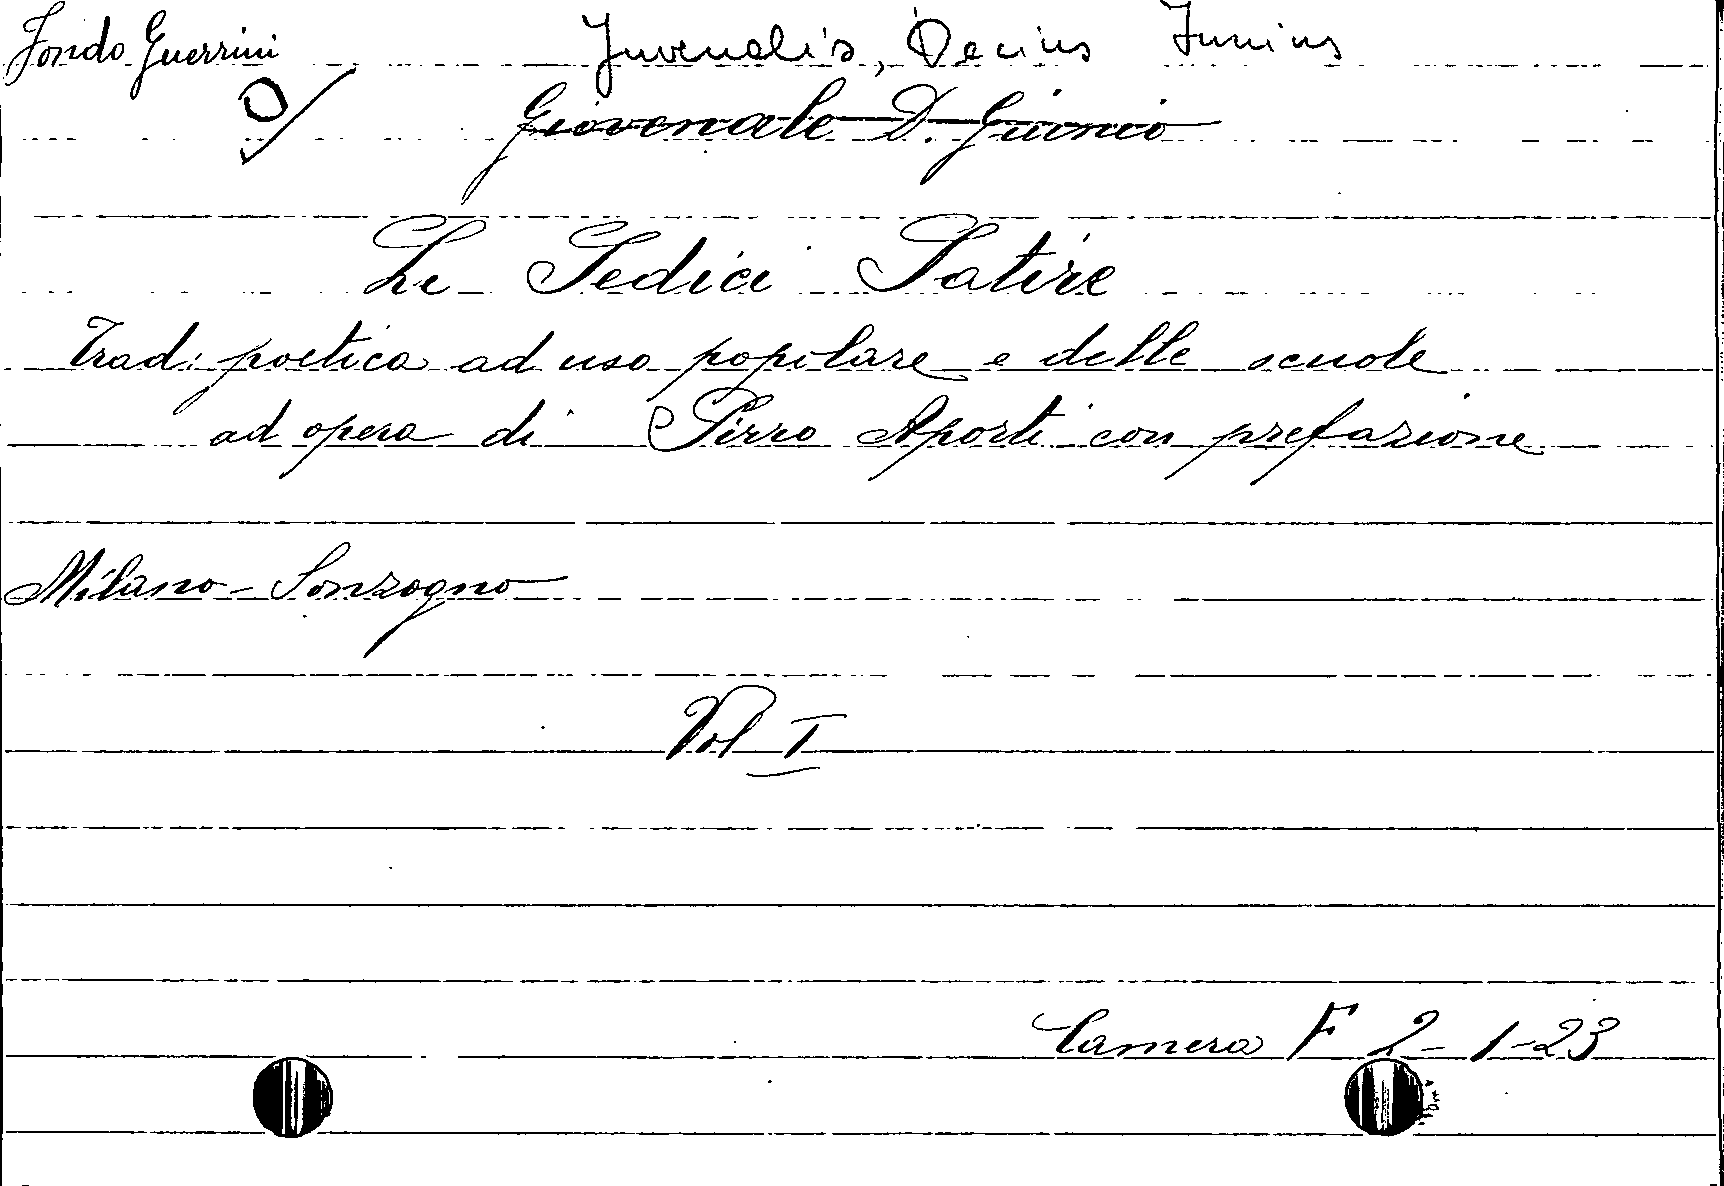 Fondo Guerrini
Juvenalis, Decius Junius
Giovenale D. Giunio
Le Sedici Satire
Trad. poetica ad uso popolare e delle scuole
ad opera di Pirro Aporti con prefazione
Milano - Sonzogno
Vol I
Camera F 2-1-23